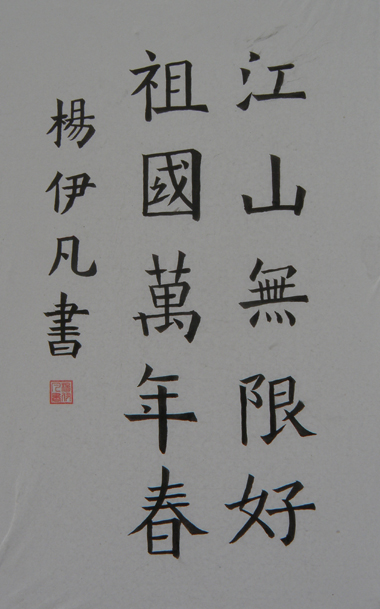 江山無限好
祖國萬年春
楊伊凡書